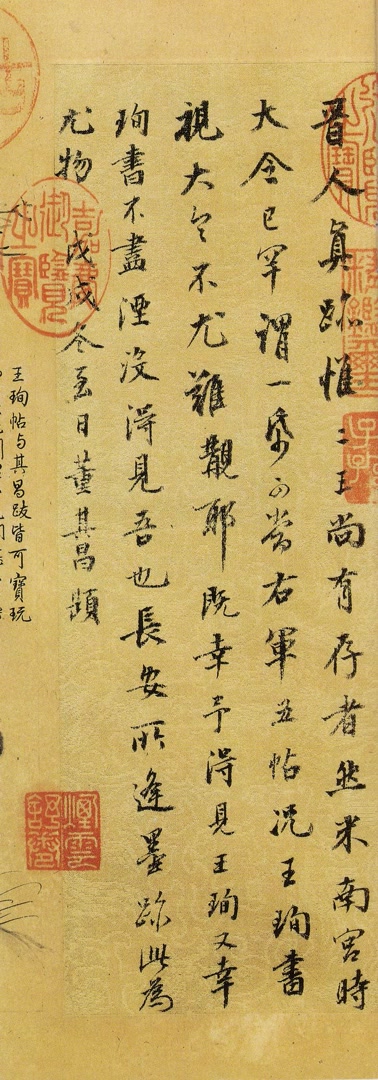 晉人真跡惟二王尚有存者然米南宮時
大令已罕謂一紙可當右軍五帖況王珣書
視大令不尤難覯耶既幸予得見王珣又幸
珣書不盡湮沒得見吾也長安所逢墨跡此為
尤物 戊戌冬至日董其昌題
王珣帖與其昌跋皆可寶玩
嘉慶御覽之寶
煙雲